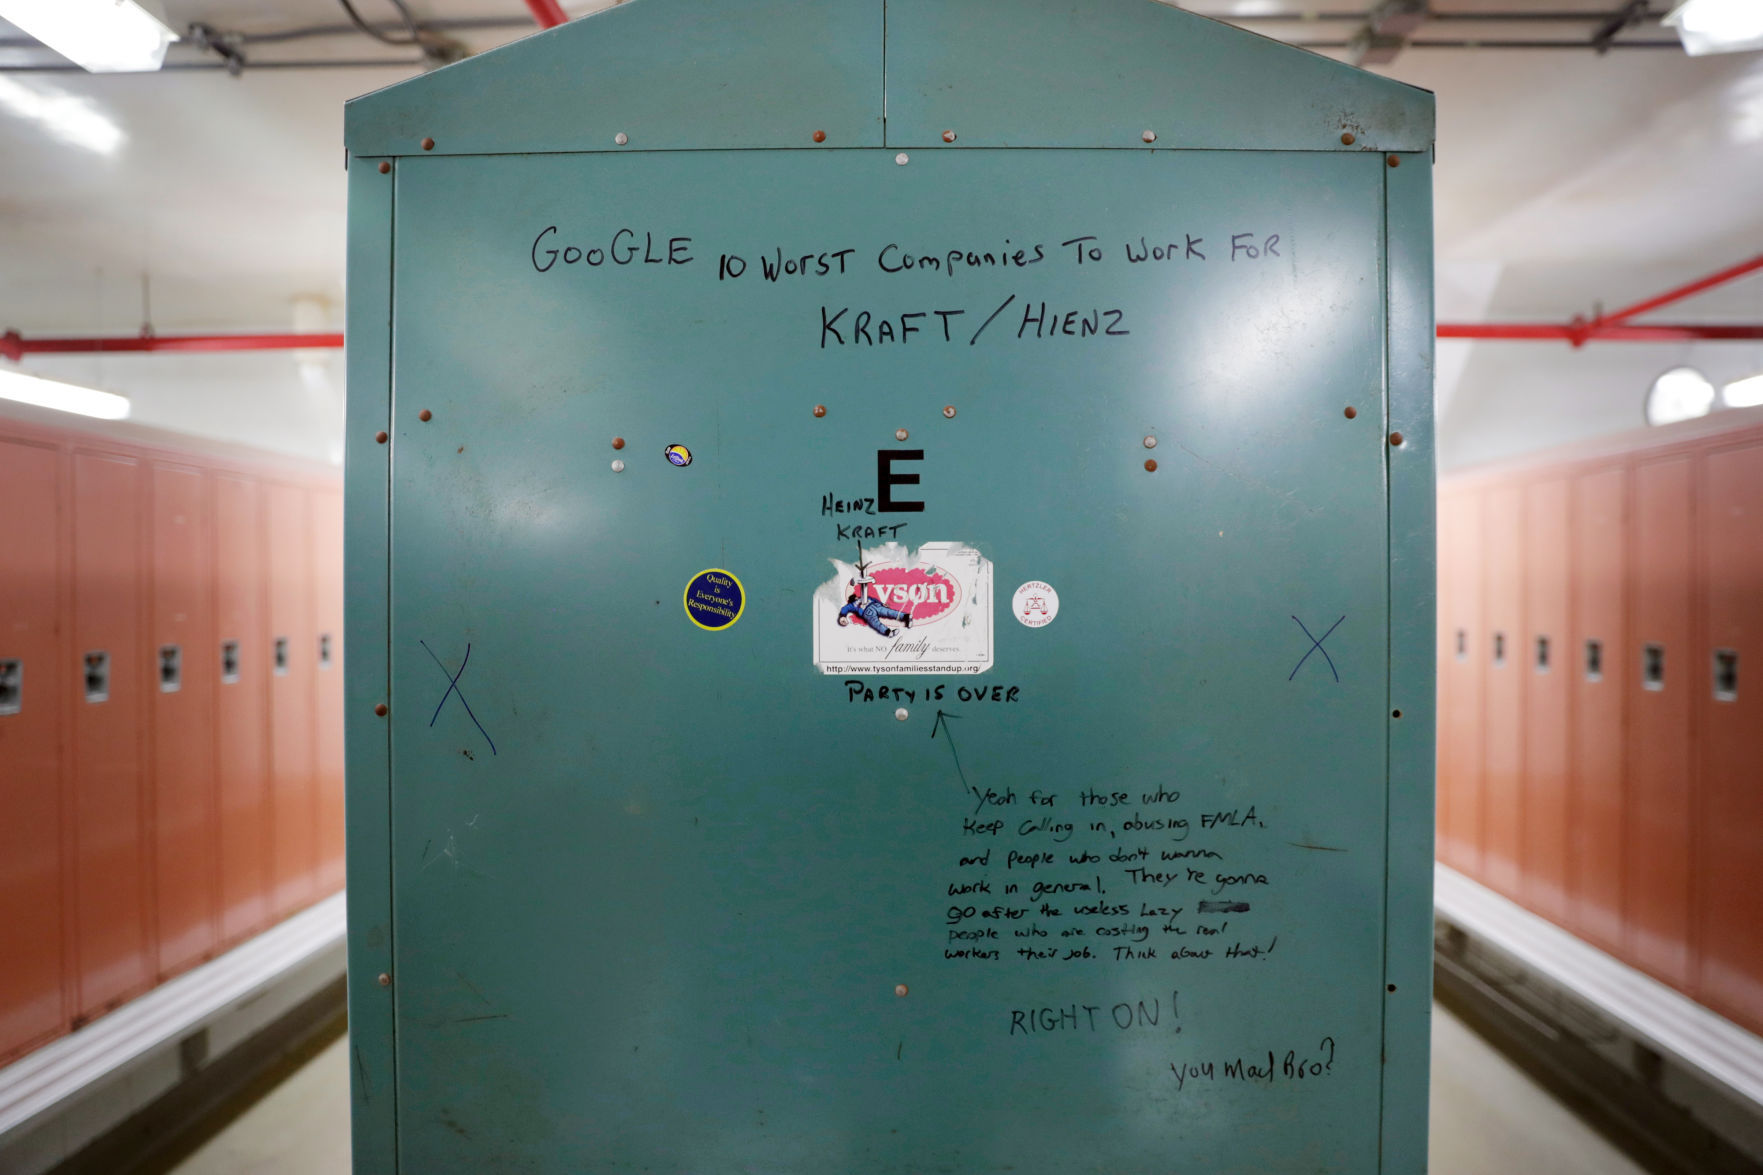 GOOGLE 10 WORST Companies To Work FOR
KRAFT/HIENZ
E
HEINZ
KRAFT
Tyson
It's what NO family deserves.
http://www.tysonfamiliesstandup.org/
Quality
is
Everyone's
Responsibility
HERTZLER
CERTIFIED
PARTY IS OVER
Yeah for those who
Keep Calling in, abusing FMLA,
and people who don't wanna
work in general. They're gonna
go after the useless Lazy
people who are costing the real
workers their job. Think about that!
RIGHT ON!
you Mad Bro?